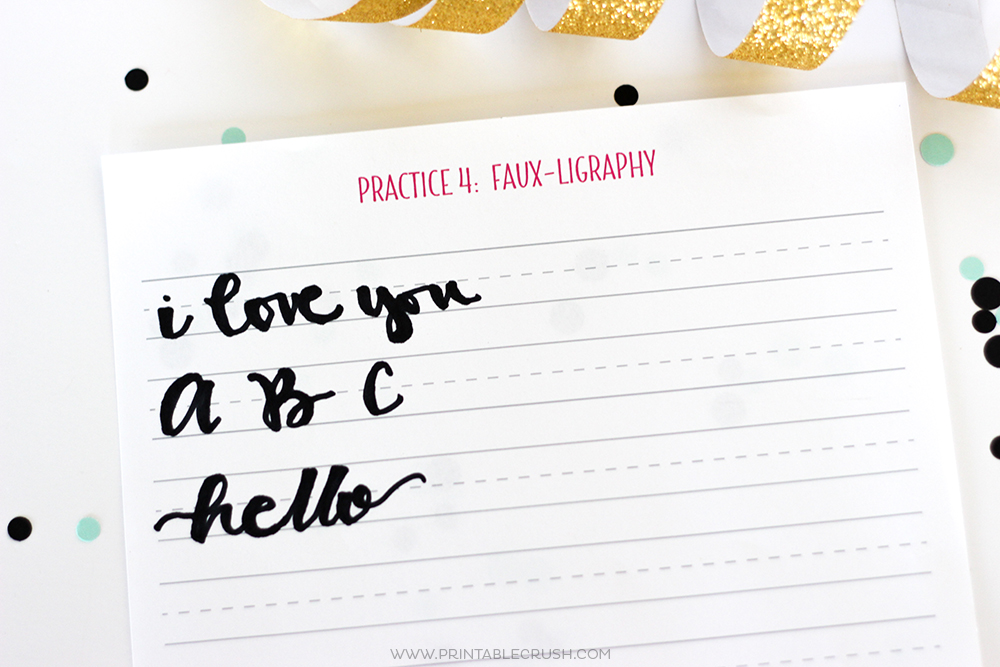 PRACTICE 4: FAUX-LIGRAPHY
i love you
A B C
hello
WWW.PRINTABLECRUSH.COM